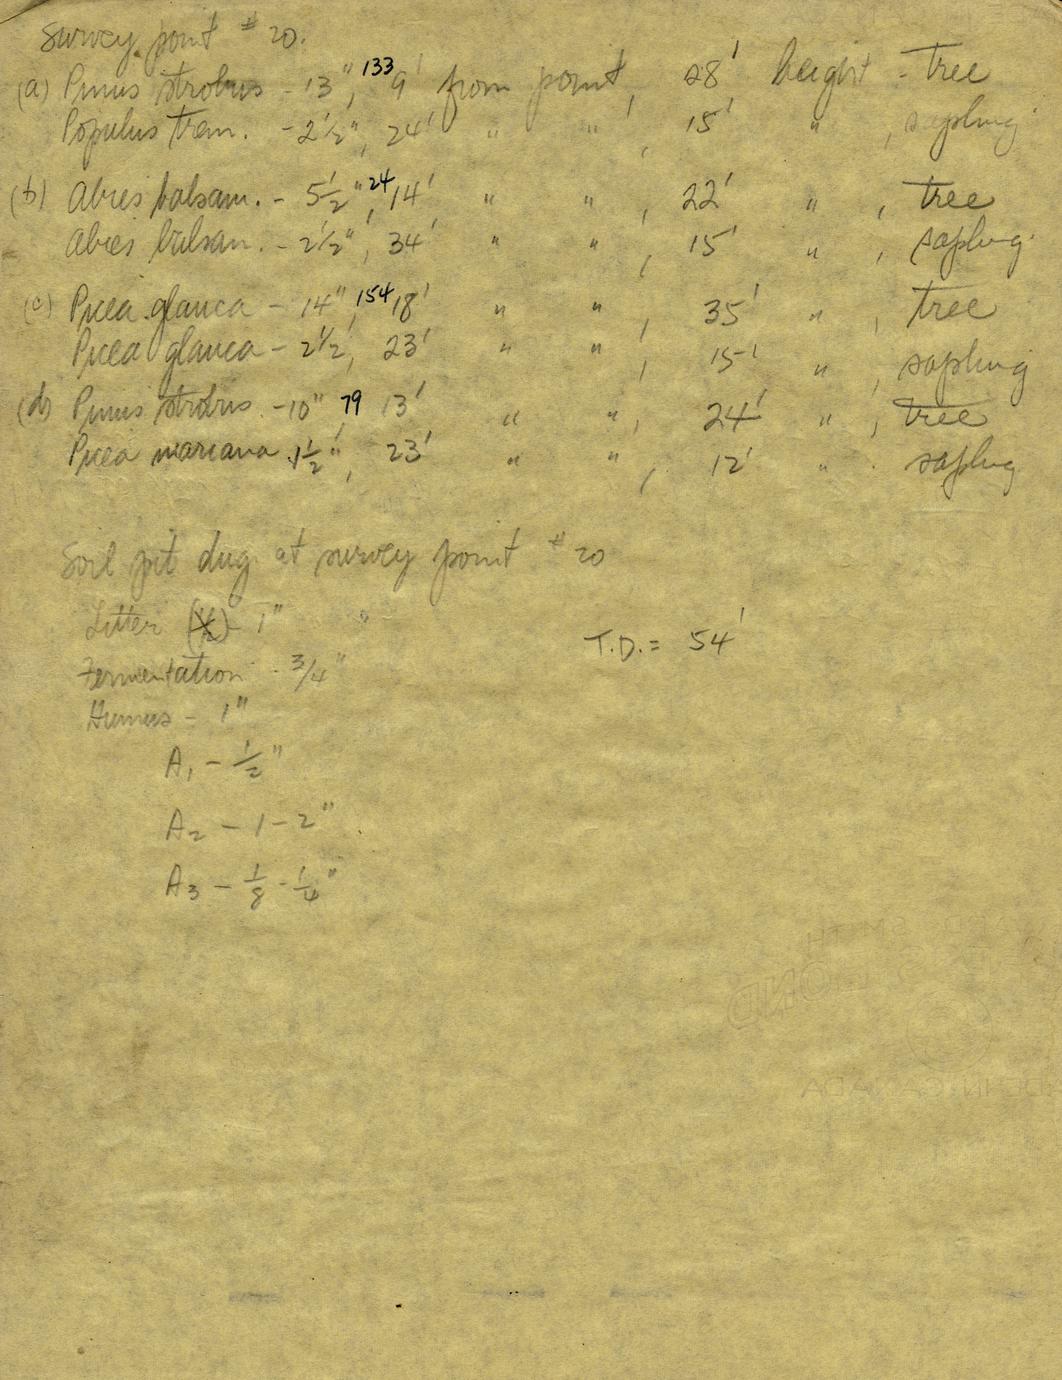 Survey point # 20.
(a) Pinus strobus - 13", 133 9' from point, 28' height - tree
Populus trem. - 2 1/2", 24' " " , 15' " , sapling
(b) Abies balsam. - 5 1/2", 24 14' " " , 22' " , tree
Abies balsam. - 2 1/2", 34' " " , 15' " , sapling
(c) Picea glauca - 14", 154 18' " " , 35' " , tree
Picea glauca - 2 1/2', 23' " " , 15' " , sapling
(d) Pinus strobus - 10", 79 13' " " , 24' " , tree
Picea mariana 1 1/2", 23' " " , 12' " . sapling
Soil pit dug at survey point # 20
Litter (1/2) - 1" "
T.D. = 54'
Fermentation - 3/4"
Humus - 1"
A1 - 1/2"
A2 - 1 - 2"
A3 - 1/8 - 1/4"